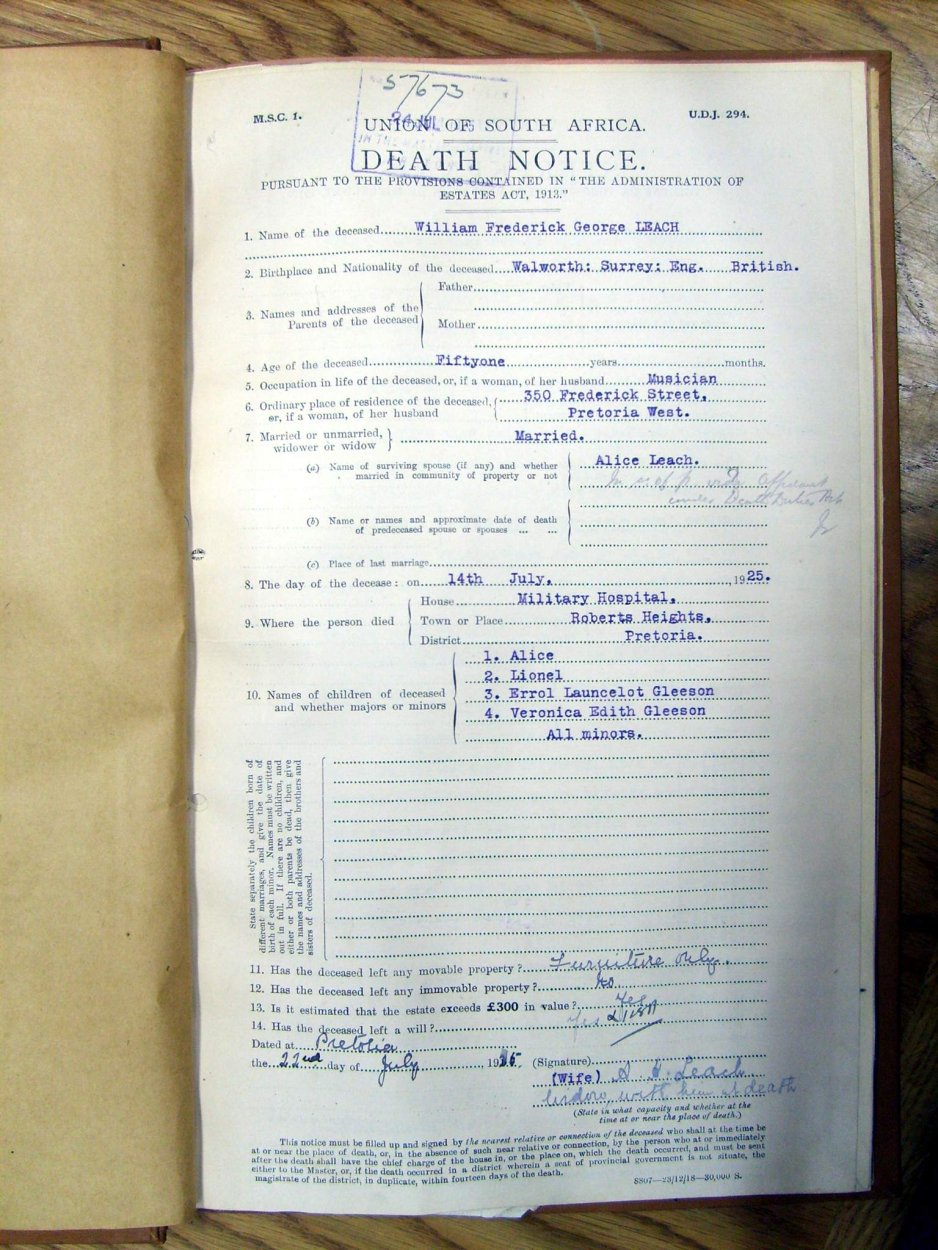 57673
M.S.C. 1.
U.D.J. 294.
24 JUL
UNION OF SOUTH AFRICA.
DEATH NOTICE.
PURSUANT TO THE PROVISIONS CONTAINED IN "THE ADMINISTRATION OF
ESTATES ACT, 1913."
1. Name of the deceased William Frederick George LEACH
2. Birthplace and Nationality of the deceased Walworth: Surrey: Eng. British.
3. Names and addresses of the
Parents of the deceased
Father
Mother
4. Age of the deceased Fiftyone years months.
5. Occupation in life of the deceased, or, if a woman, of her husband Musician
6. Ordinary place of residence of the deceased,
or, if a woman, of her husband
350 Frederick Street,
Pretoria West.
7. Married or unmarried,
widower or widow
Married.
(a) Name of surviving spouse (if any) and whether
married in community of property or not
Alice Leach.
(b) Name or names and approximate date of death
of predeceased spouse or spouses ... ...
(c) Place of last marriage
8. The day of the decease: on 14th July, 1925.
9. Where the person died
House Military Hospital,
Town or Place Roberts Heights,
District Pretoria.
10. Names of children of deceased
and whether majors or minors
1. Alice
2. Lionel
3. Errol Launcelot Gleeson
4. Veronica Edith Gleeson
All minors.
State separately the children born of
different marriages, and give the date of
birth of each minor. Names must be written
out in full. If there are no children, and
either or both parents be dead, then give
the names and addresses of the brothers and
sisters of deceased.
11. Has the deceased left any movable property? Furniture only.
12. Has the deceased left any immovable property? No
13. Is it estimated that the estate exceeds £300 in value? Yes
14. Has the deceased left a will? Yes
Dated at Pretoria
the 22nd day of July 1925.
(Signature) A. H. Leach
(Wife)
with him at death
(State in what capacity and whether at the
time at or near the place of death.)
This notice must be filled up and signed by the nearest relative or connection of the deceased who shall at the time be
at or near the place of death, or, in the absence of such near relative or connection, by the person who at or immediately
after the death shall have the chief charge of the house in, or the place on, which the death occurred, and must be sent
either to the Master, or, if the death occurred in a district wherein a seat of provincial government is not situate, the
magistrate of the district, in duplicate, within fourteen days of the death.
S807—23/12/18—30,000 S.